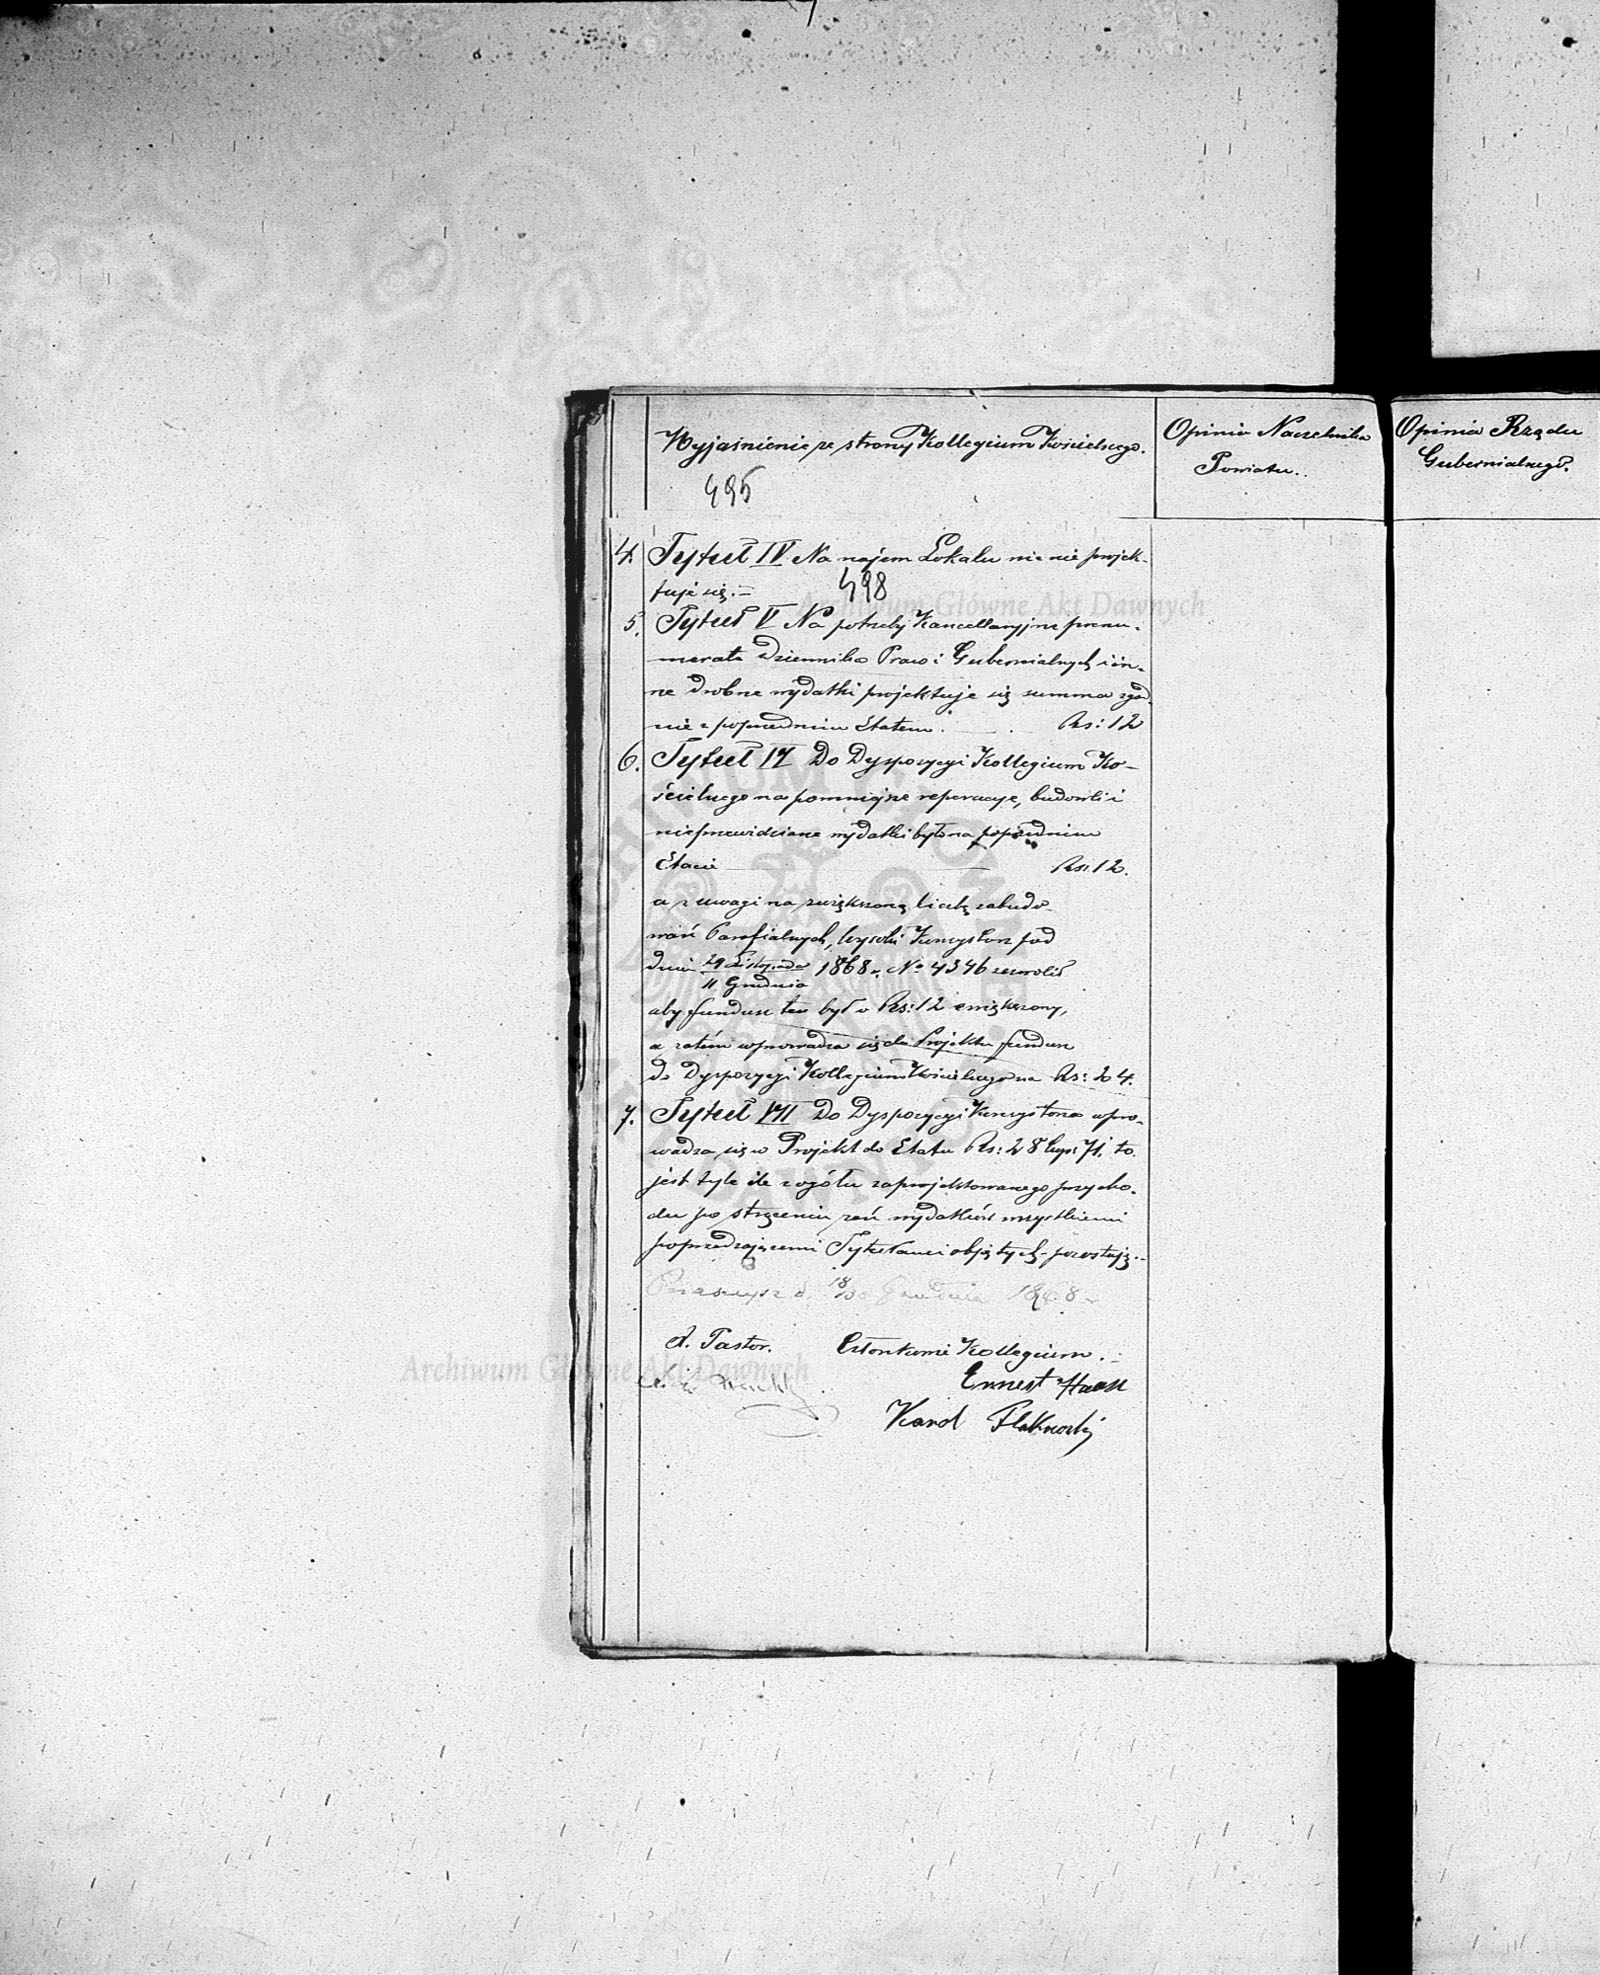 Wyjaśnienie ze strony Kollegium Kościelnego.
Opinia Naczelnika
Powiatu.
Opinia Rządu
Gubernialnego.
495
4. Tytuł IV Na najem Lokalu nic nie projek-
tuje się.
498
5. Tytuł V Na potrzeby Kancellaryjne prenu-
meratę Dziennika Praw i Gubernialnych i in-
ne drobne wydatki projektuje się summa zgod-
nie z poprzednim Etatem. Rs: 12
6. Tytuł VI Do Dyspozycyi Kollegium Ko-
ścielnego na pomniejsze reperacye, budowli i
nieprzewidziane wydatki było na poprzednim
Etacie Rs: 12.
a z uwagi na zwiększoną liczbę zabudo-
wań Parafialnych, Wysoki Konsystorz pod
dniem 29 Listopada / 11 Grudnia 1868 r. No 4346 zezwolił
aby fundusz ten był o Rs: 12 zwiększony,
a zatem wprowadza się do Projektu fundusz
do Dyspozycyi Kollegium Kościelnego na Rs: 24.
7. Tytuł VII Do Dyspozycyi Konsystorza wpro-
wadza się w Projekt do Etatu Rs: 28 kop: 71. to
jest tyle ile z ogółu zaprojektowanego przycho-
du po strąceniu zeń wydatków wszystkiemi
poprzedzającemi Tytułami objętych pozostaje.
Przasnysz d. 18/30 Grudnia 1868 r
Pastor. Członkowie Kollegium.
Ernest Haase
Karol
Archiwum Główne Akt Dawnych
Archiwum Główne Akt Dawnych